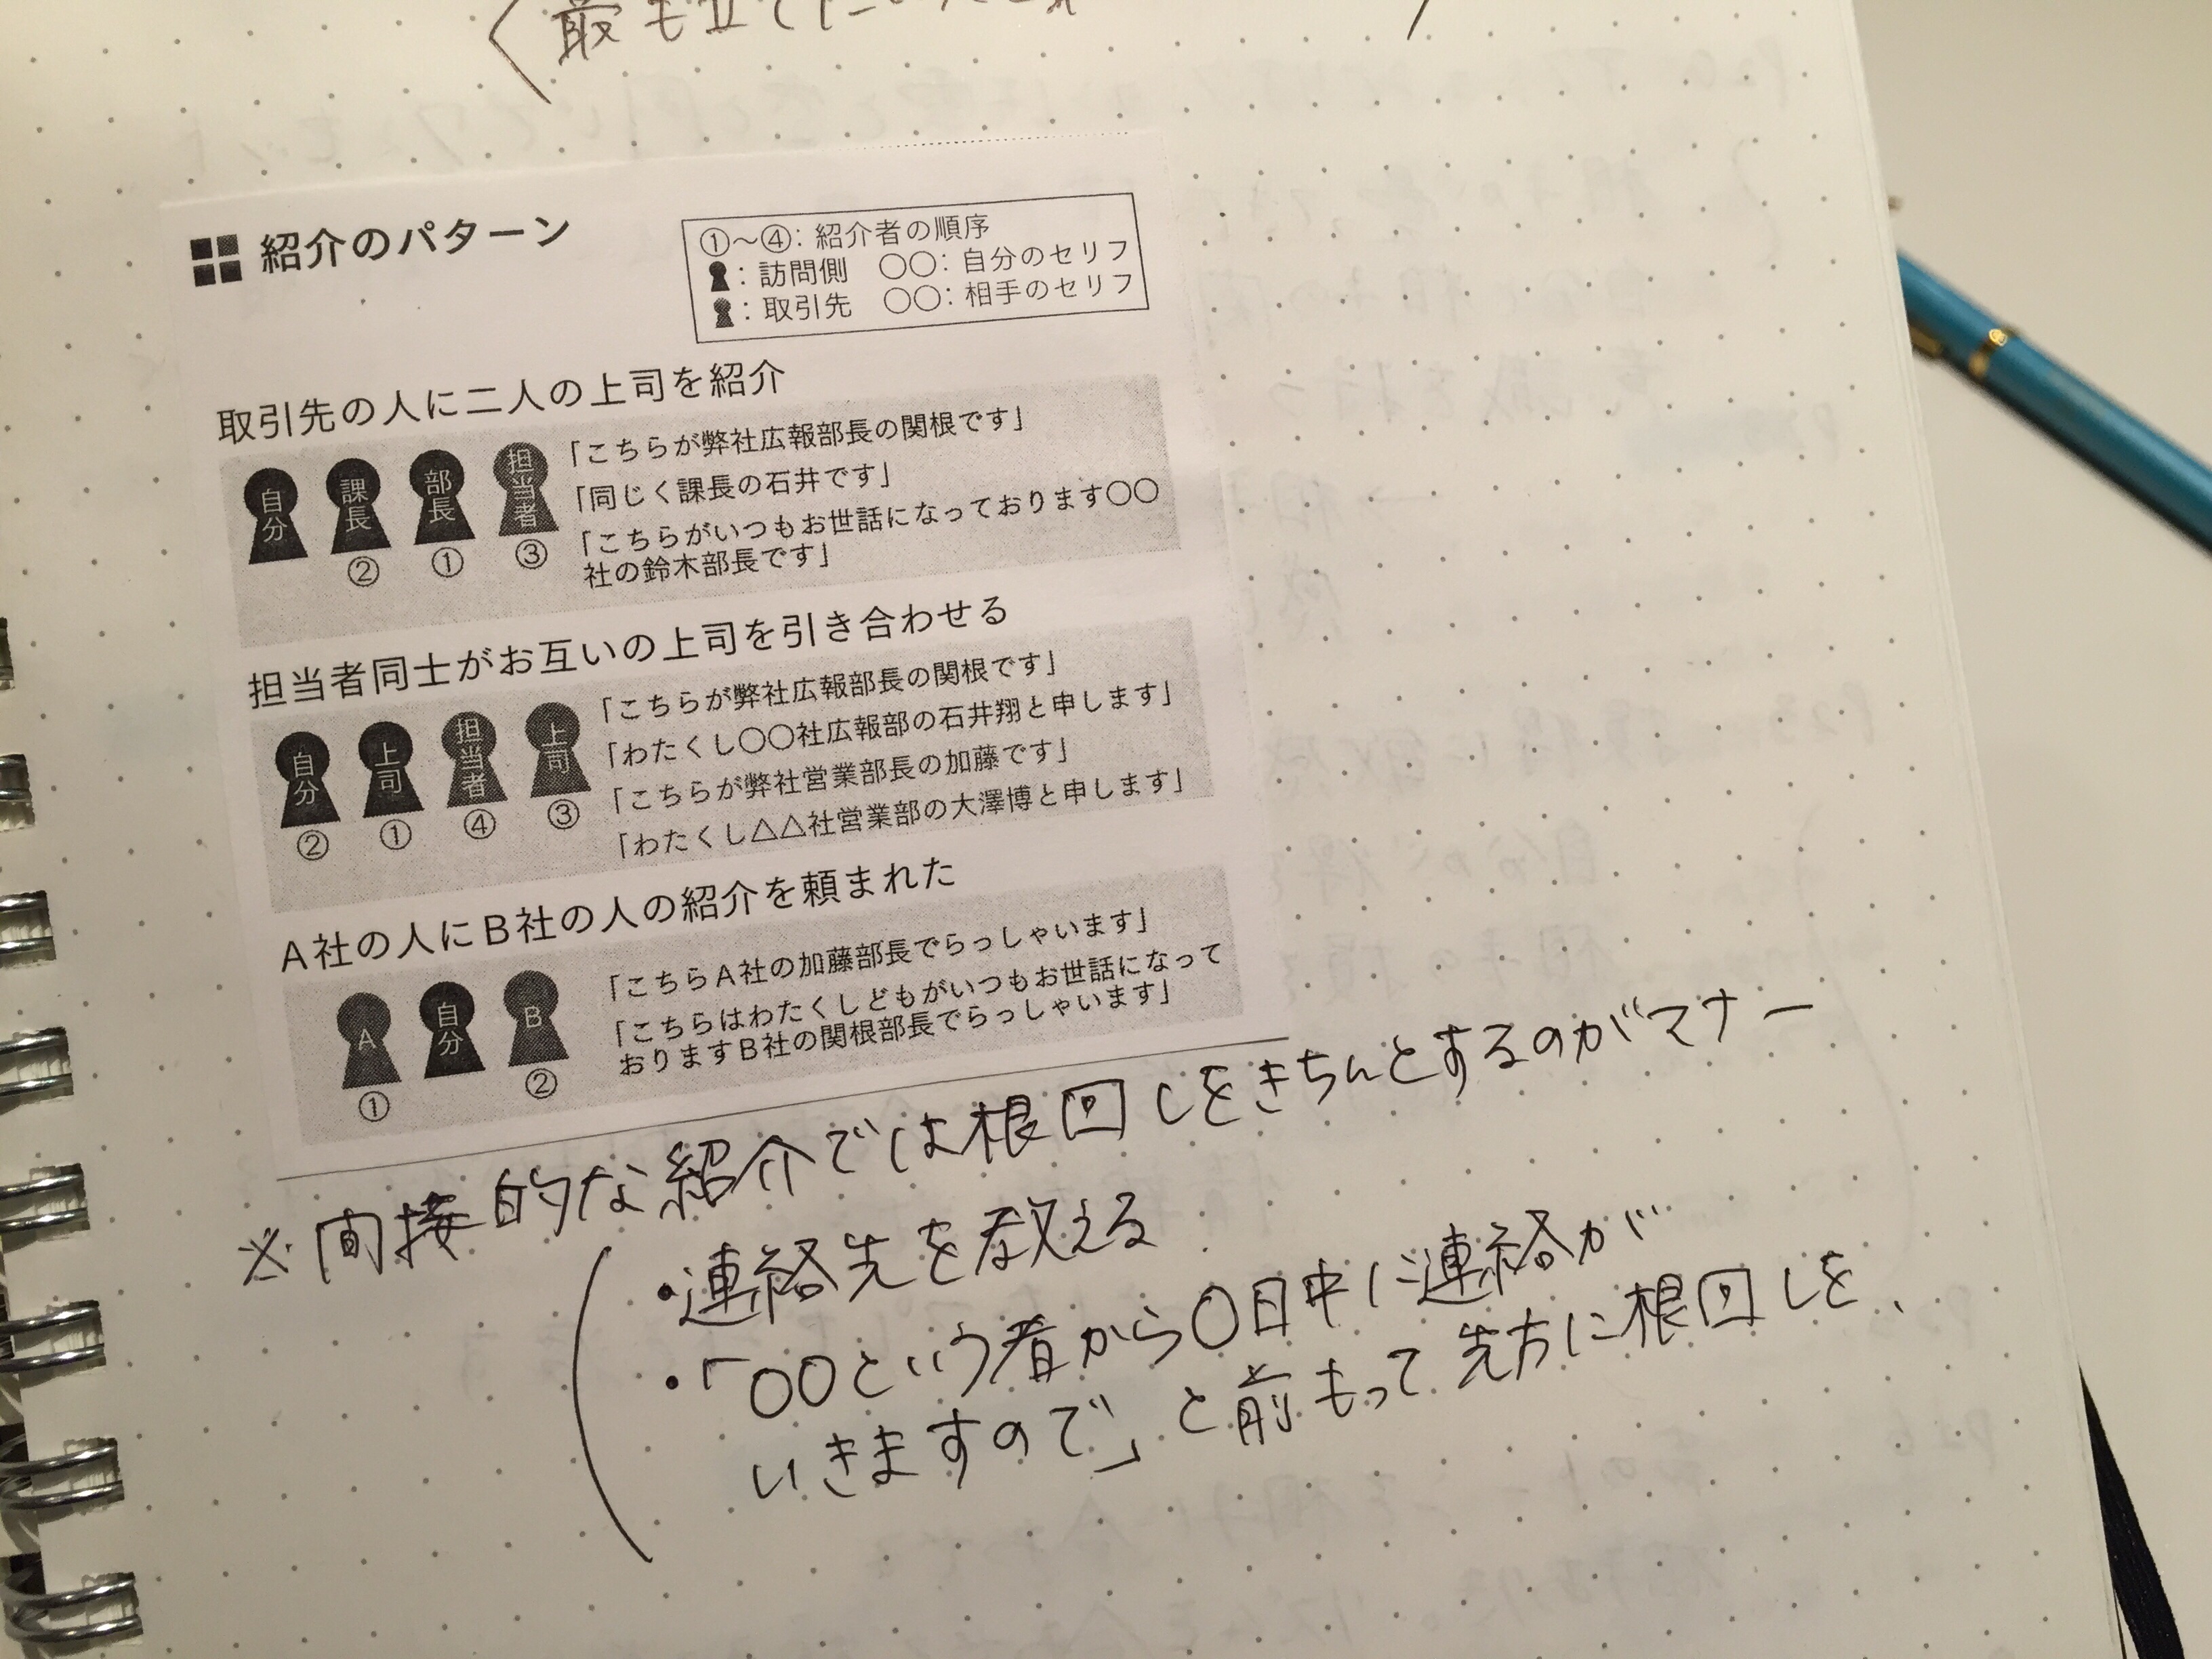 最も立て
紹介のパターン
①〜④：紹介者の順序
：訪問側　○○：自分のセリフ
：取引先　○○：相手のセリフ
取引先の人に二人の上司を紹介
自分 課長 部長 担当者
② ① ③
「こちらが弊社広報部長の関根です」
「同じく課長の石井です」
「こちらがいつもお世話になっております○○
社の鈴木部長です」
担当者同士がお互いの上司を引き合わせる
自分 上司 担当者 上司
② ① ④ ③
「こちらが弊社広報部長の関根です」
「わたくし○○社広報部の石井翔と申します」
「こちらが弊社営業部長の加藤です」
「わたくし△△社営業部の大澤博と申します」
A社の人にB社の人の紹介を頼まれた
A 自分 B
① ②
「こちらA社の加藤部長でらっしゃいます」
「こちらはわたくしどもがいつもお世話になって
おりますB社の関根部長でらっしゃいます」
※間接的な紹介では根回しをきちんとするのがマナー
・連絡先を教える
・「○○という者から○日中に連絡が
いきますので」と前もって先方に根回しを、